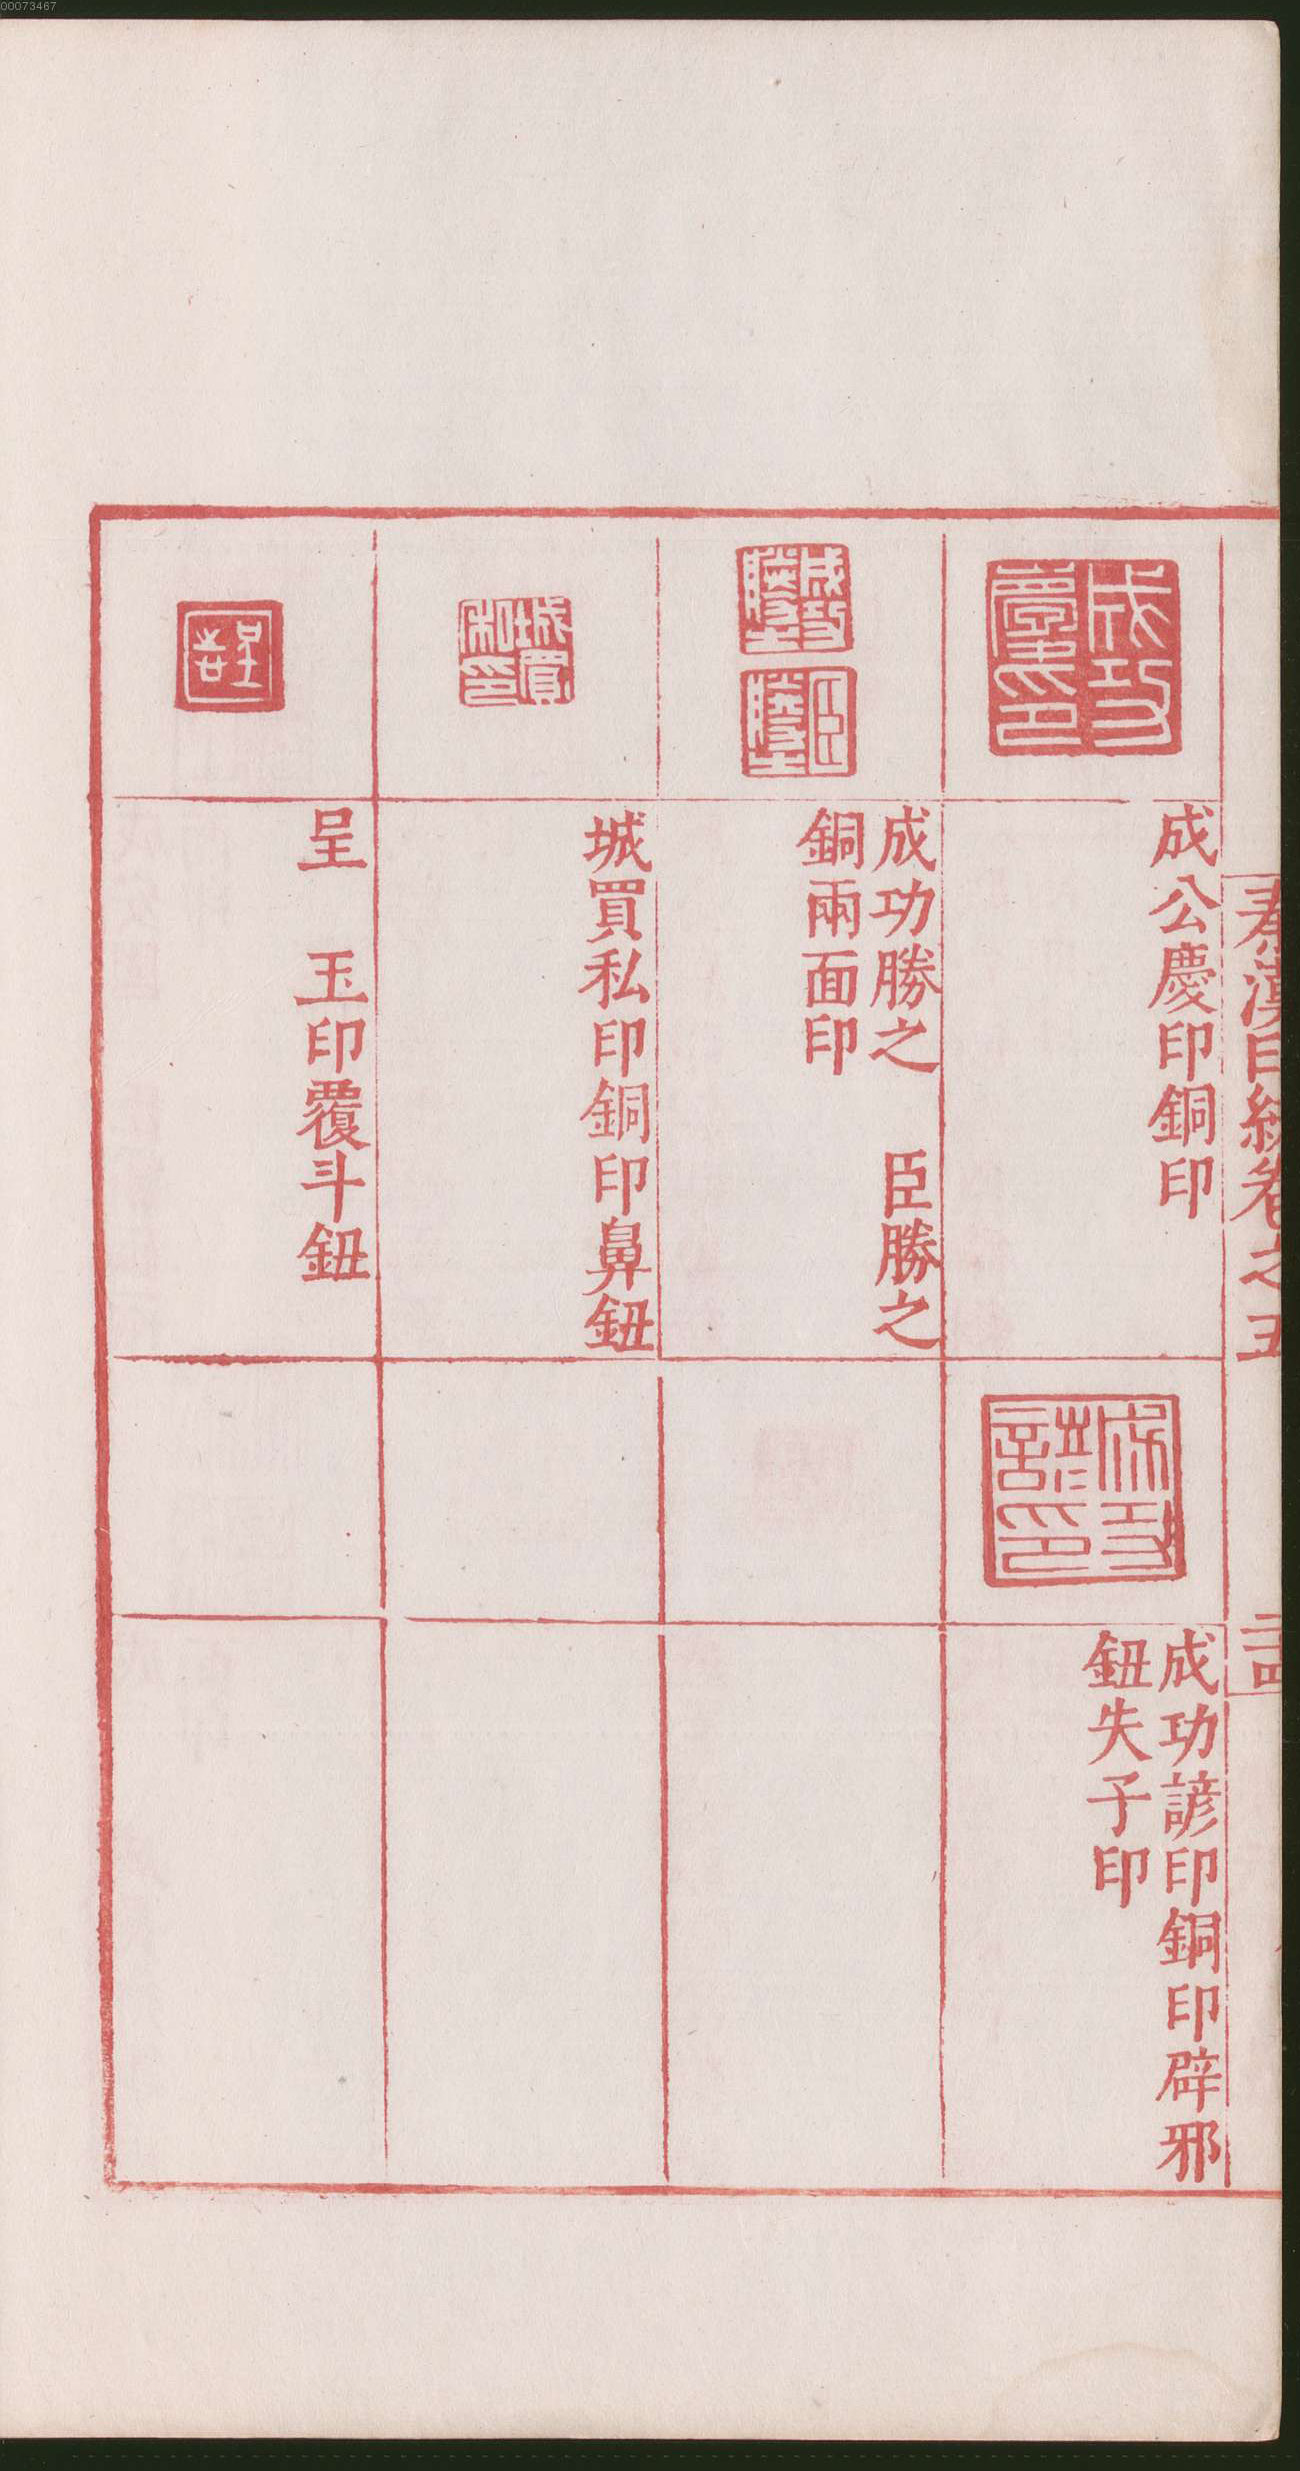 00073467
秦漢印統卷之五
二十四
成公慶印銅印
成功勝之　臣勝之
銅兩面印
城買私印銅印鼻鈕
呈　玉印覆斗鈕
成功諺印銅印辟邪
鈕失子印